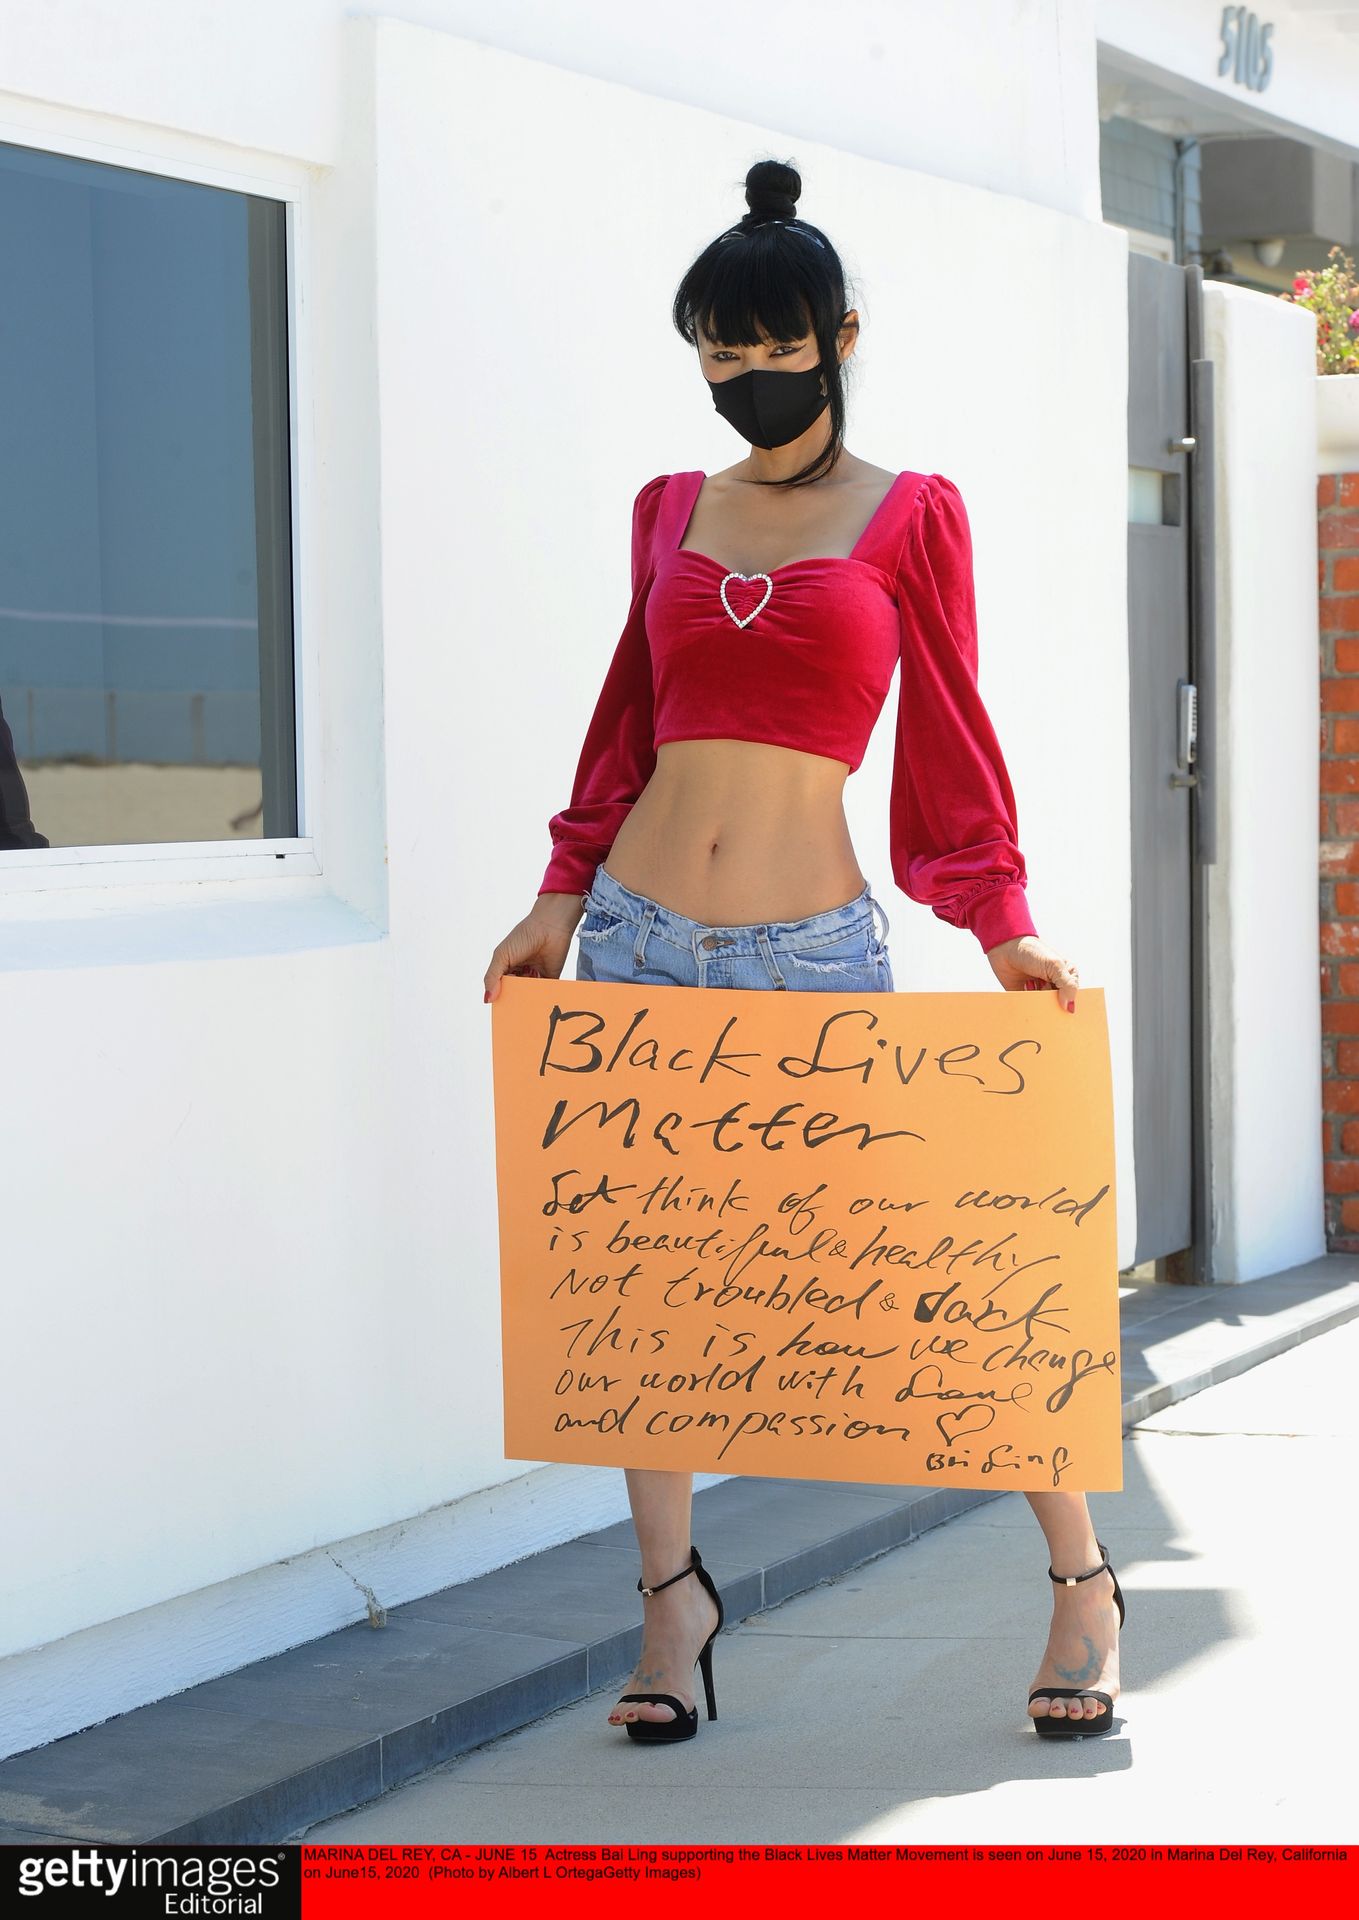 5105
Black Lives
Matter
Let think of our world
is beautiful & healthy
Not troubled & dark
This is how we change
our world with Love
and compassion ♡
Bai Ling
gettyimages®
Editorial
MARINA DEL REY, CA - JUNE 15  Actress Bai Ling supporting the Black Lives Matter Movement is seen on June 15, 2020 in Marina Del Rey, California
on June15, 2020  (Photo by Albert L OrtegaGetty Images)